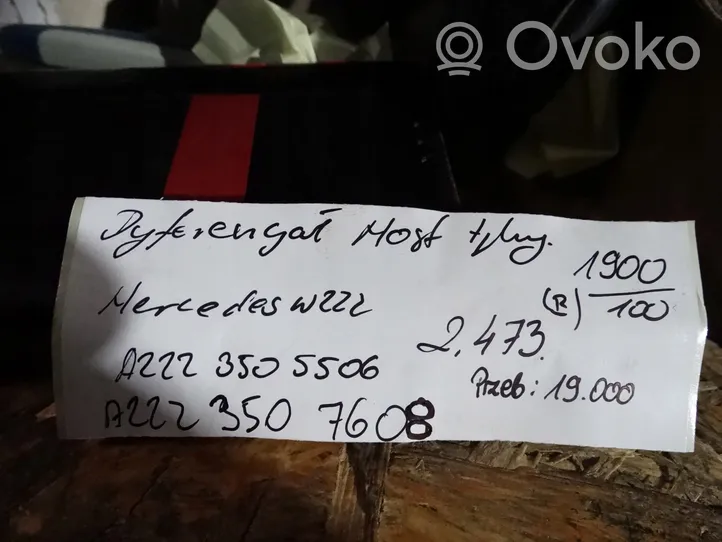 Ovoko
Dyferencjał Most tylny.
1900
(R) 100
Mercedes W222
2,473.
A222 350 5506
Przeb: 19.000
A222 350 7608